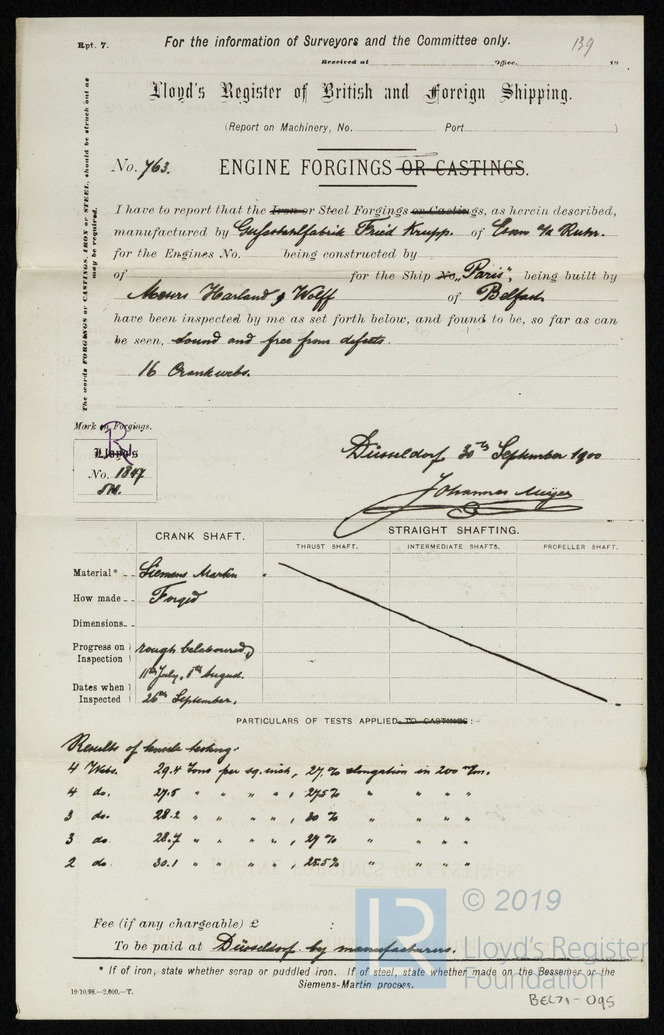 Rpt. 7.
For the information of Surveyors and the Committee only.
139
Received at Office, 19
Lloyd's Register of British and Foreign Shipping.
(Report on Machinery, No. Port )
The words FORGINGS or CASTINGS, IRON or STEEL, should be struck out as may be required.
No. 763. ENGINE FORGINGS OR CASTINGS.
I have to report that the Iron or Steel Forgings or Castings, as herein described,
manufactured by Gussstahlfabrik Fried Krupp. of Essen a/d Ruhr.
for the Engines No. being constructed by
of for the Ship No. "Paris", being built by
Messrs Harland & Wolff of Belfast
have been inspected by me as set forth below, and found to be, so far as can
be seen, sound and free from defects.
16 Crankwebs.
Mark on Forgings.
R
Lloyd's
No. 1847
Düsseldorf 30th September 1900
Johannes Meyer
CRANK SHAFT.
STRAIGHT SHAFTING.
THRUST SHAFT. INTERMEDIATE SHAFTS. PROPELLER SHAFT.
Material* Siemens Martin
How made Forged
Dimensions
Progress on Inspection rough
Dates when Inspected 11th July, 8th August.
26th September.
PARTICULARS OF TESTS APPLIED TO CASTINGS:-
Results of tensile testing:
4 Webs. 29.4 tons per sq. inch, 27.% elongation in 200 m/m.
4 do. 27.5 " " " " , 27.5% " " " "
3 do. 28.2 " " " " , 30 % " " " "
3 do 28.7 " " " " , 27 % " " " "
2 do 30.1 " " " " , 25.5% " " " "
Fee (if any chargeable) £ :
To be paid at Düsseldorf by manufacturers.
* If of iron, state whether scrap or puddled iron. If of steel, state whether made on the Bessemer or the
Siemens-Martin process.
19/10/98.—2,000.—T.
LR
© 2019
Lloyd's Register
Foundation
BEL71-095